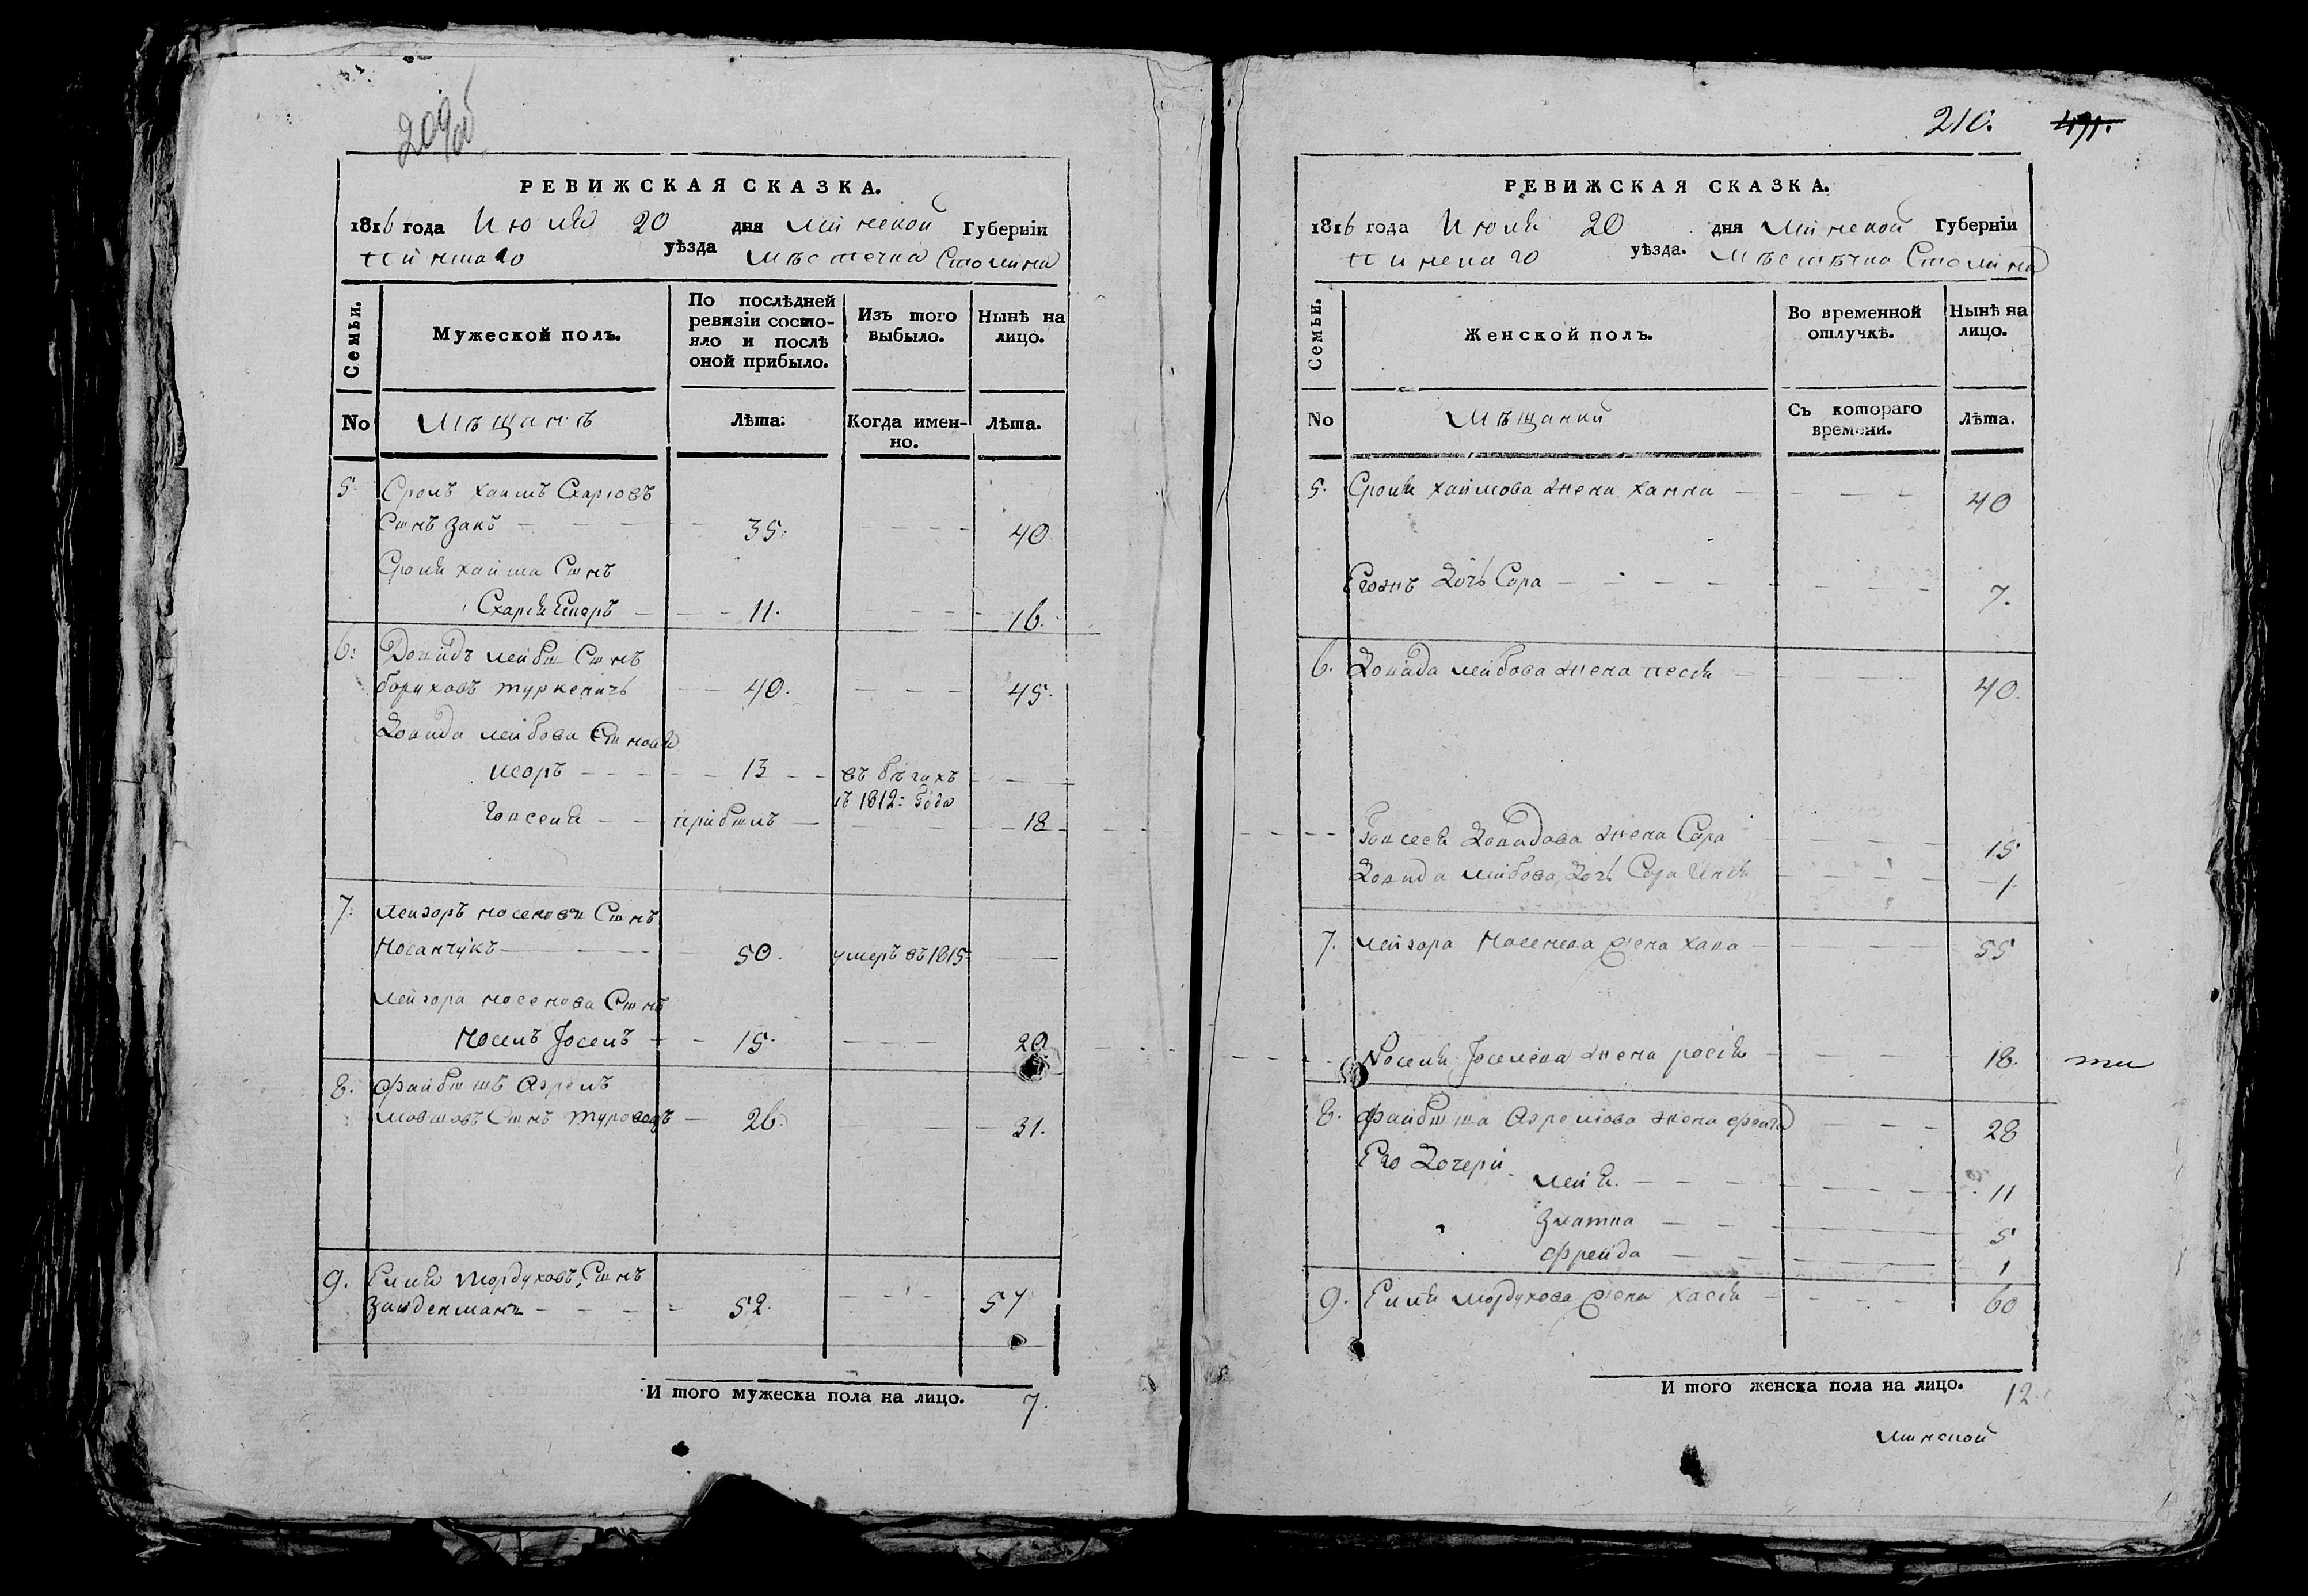 209об
РЕВИЖСКАЯ СКАЗКА.
1816 года Июля 20 дня Минской Губерніи
Пиншаго уѣзда Мѣстечка Столина
Семьи.
Мужеской полъ.
По послѣдней ревизіи состояло и послѣ оной прибыло.
Изъ того выбыло.
Нынѣ на лицо.
No
Мѣщанъ
Лѣта.
Когда именно.
Лѣта.
5. Сролъ Хаимъ
Сынъ Закъ 35. 40
Сроля Хаима Сынъ
11. 16.
6. Довидъ Лейбы Сынъ
Боруховъ Туркеничъ 40. 45.
Довида Лейбова Сыновья
Меоръ 13 въ бѣгахъ
съ 1812: Года
прибылъ 18
7. Лейзоръ Носеновъ Сынъ
Носанчукъ 50. умеръ въ 1815:
Лейзора Носенова Сынъ
Носенъ Іосель 15. 20.
8. Файбишъ Аврелъ
Мовшовъ Сынъ Туровецъ 26. 31.
9. Еиля Мордуховъ Сынъ
Зайденманъ 52. 57
И того мужеска пола на лицо. 7.
210. 491.
РЕВИЖСКАЯ СКАЗКА.
1816 года Июля 20 дня Минской Губерніи
Пинскаго уѣзда. Мѣстѣчка Столина
Семьи.
Женской полъ.
Во временной отлучкѣ.
Нынѣ на лицо.
No
Мѣщанки
Съ котораго времени.
Лѣта.
5. Сроля Хаймова жена Ханна 40
Егожъ Дочь Сора 7.
6. Довида Лейбова жена Песся 40.
Довидова жена Сора 15
Довида Лейбова Дочь Сора 1
7. Лейзора Носенова жена Хана 55
Носеня Іоселева жена Рося 18. ти
8. Файбиша Аврелова жена Фейга 28
Его Дочери
Лея 11
Златка 5
Фрейда 1
9. Еиля Мордухова жена Хася 60
И того женска пола на лицо. 12.
Минской